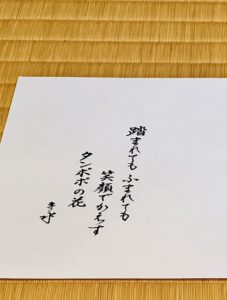 踏まれても
ふまれても
笑顔でかえす
タンポポの花